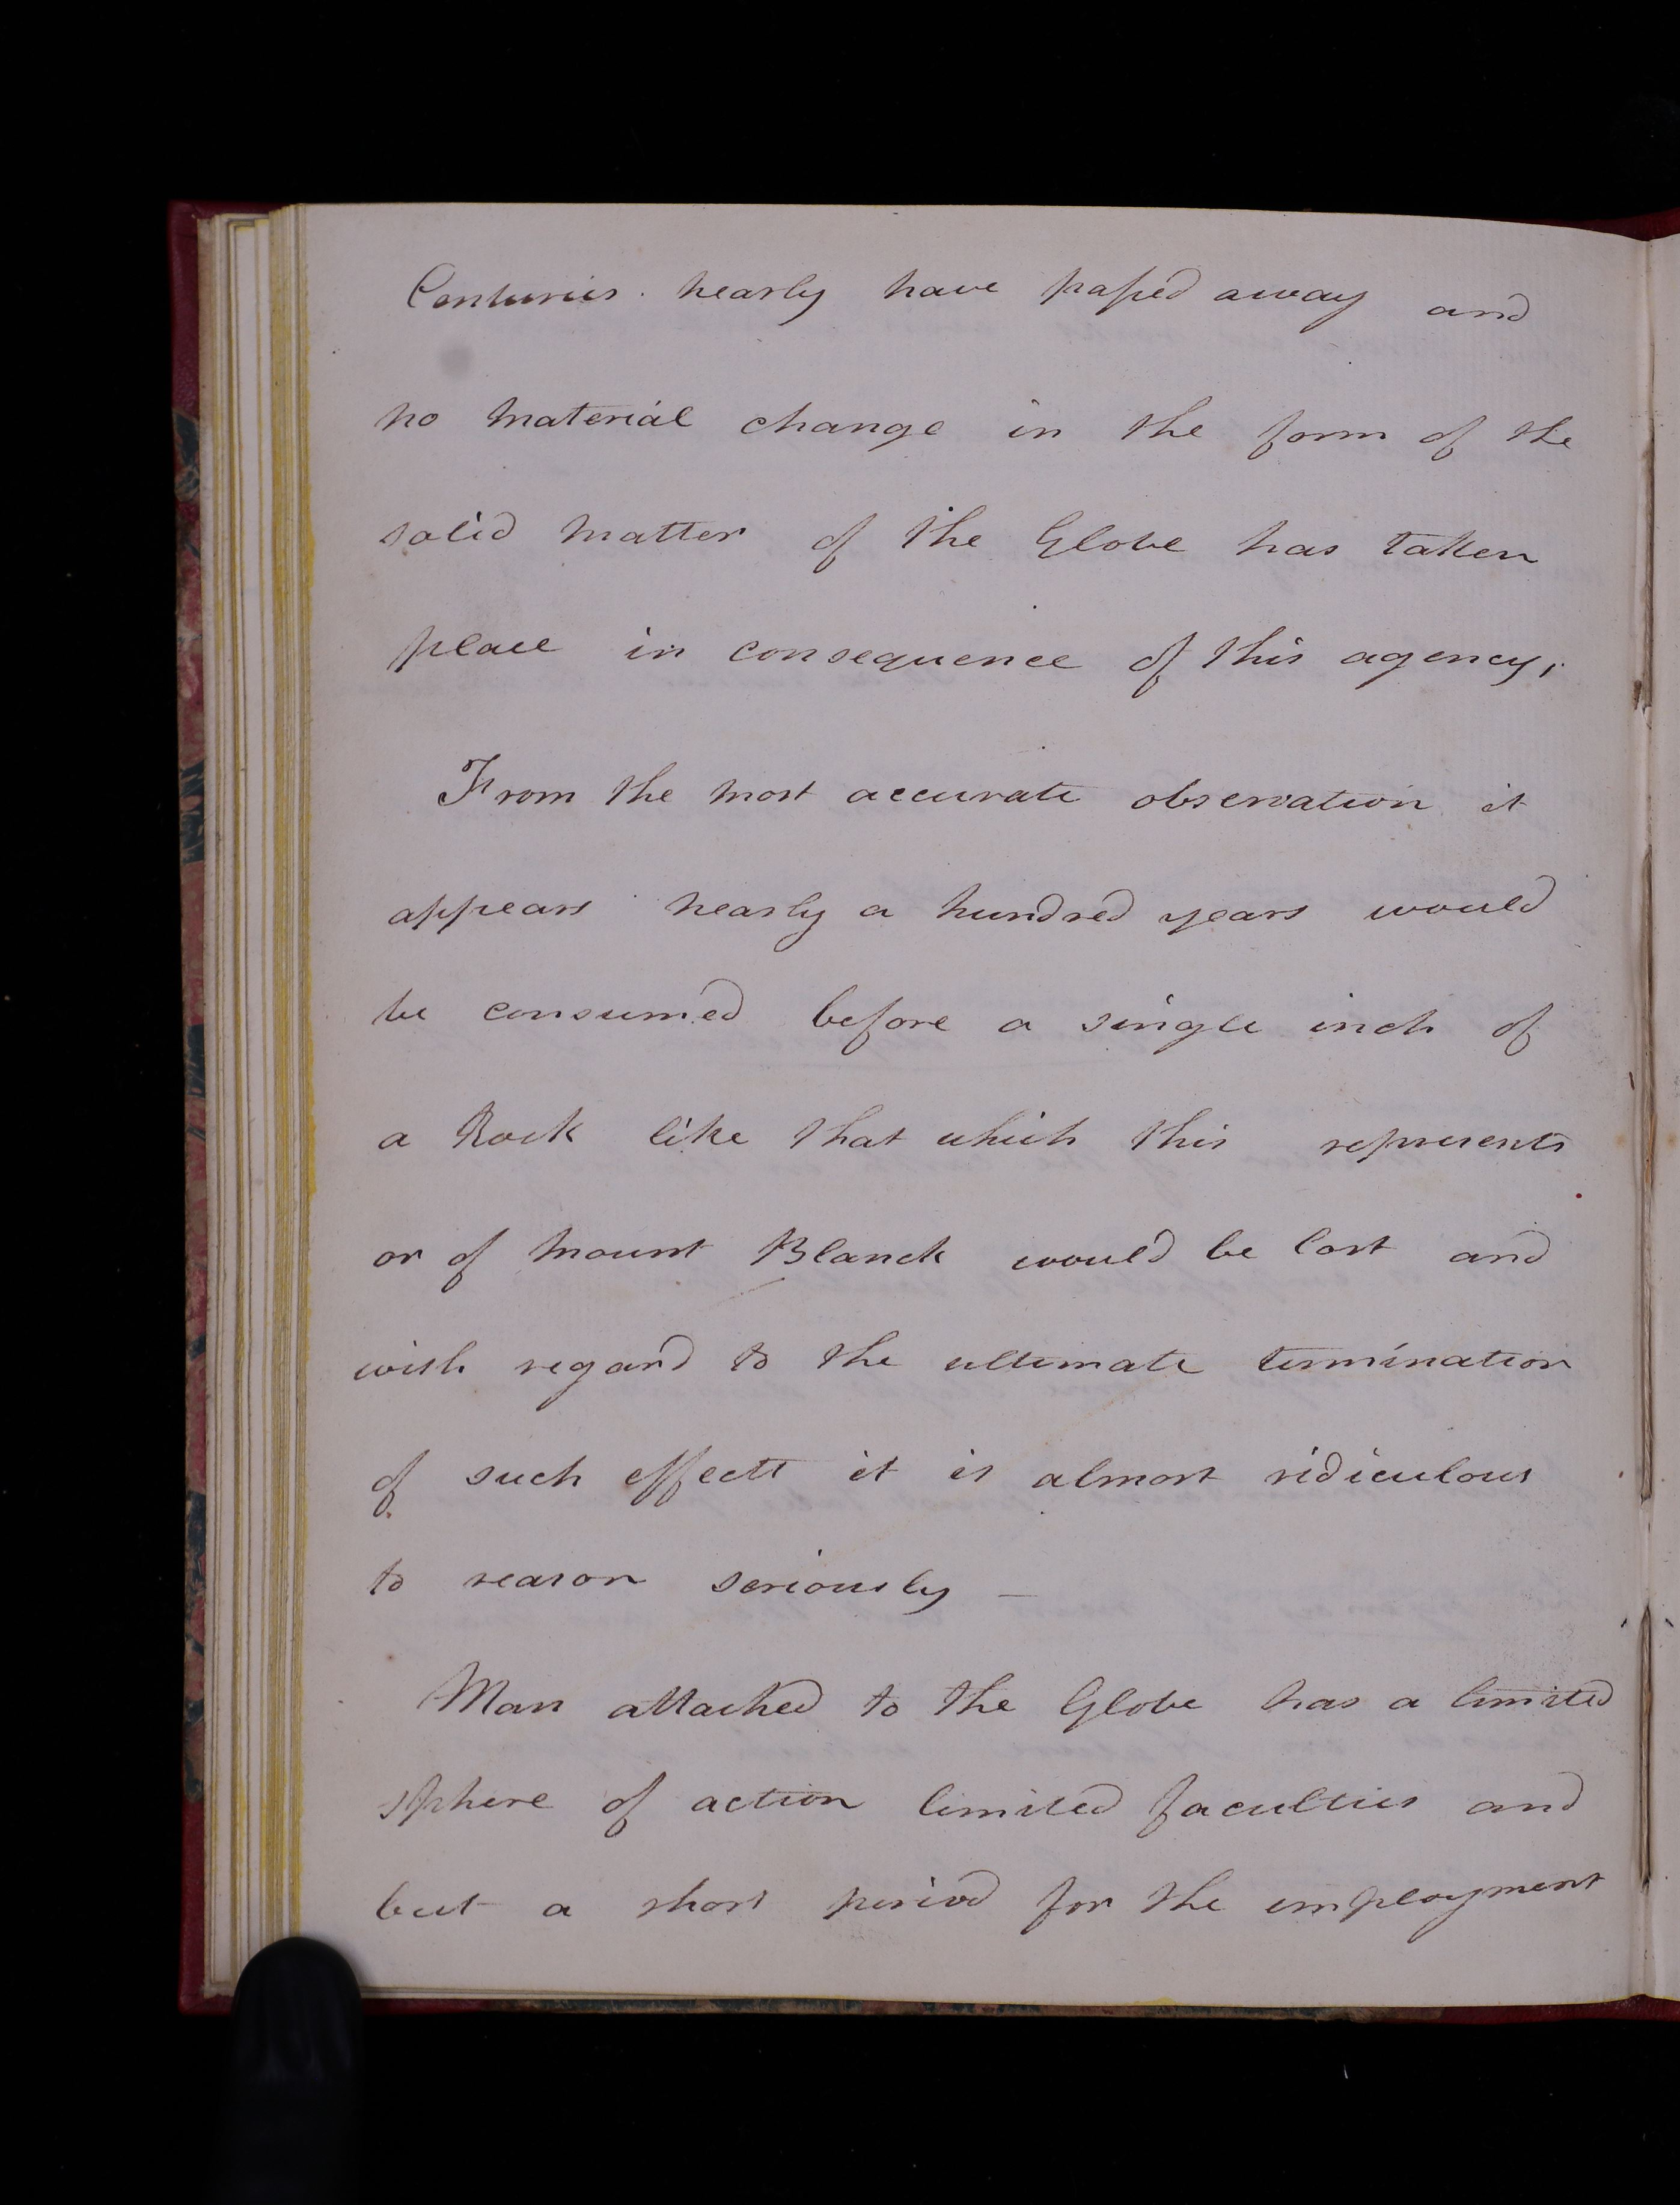 Centuries nearly have paſsed away and
no material change in the form of the
solid matter of the Globe has taken
place in consequence of this agency;
From the most accurate observation it
appears nearly a hundred years would
be consumed before a single inch of
a Rock like that which this represents
or of Mount Blanck would be lost and
with regard to the ultimate termination
of such effects it is almost ridiculous
to reason seriously —
Man attached to the Globe has a limited
sphere of action limited faculties and
but a short period for the employment